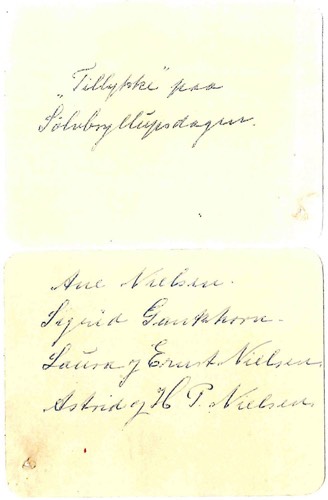 „Tillykke" paa
Sølvbryllupsdagen.
Ane Nielsen.
Sigrid
Laura og Ernst Nielsen.
Astrid og H P. Nielsen.